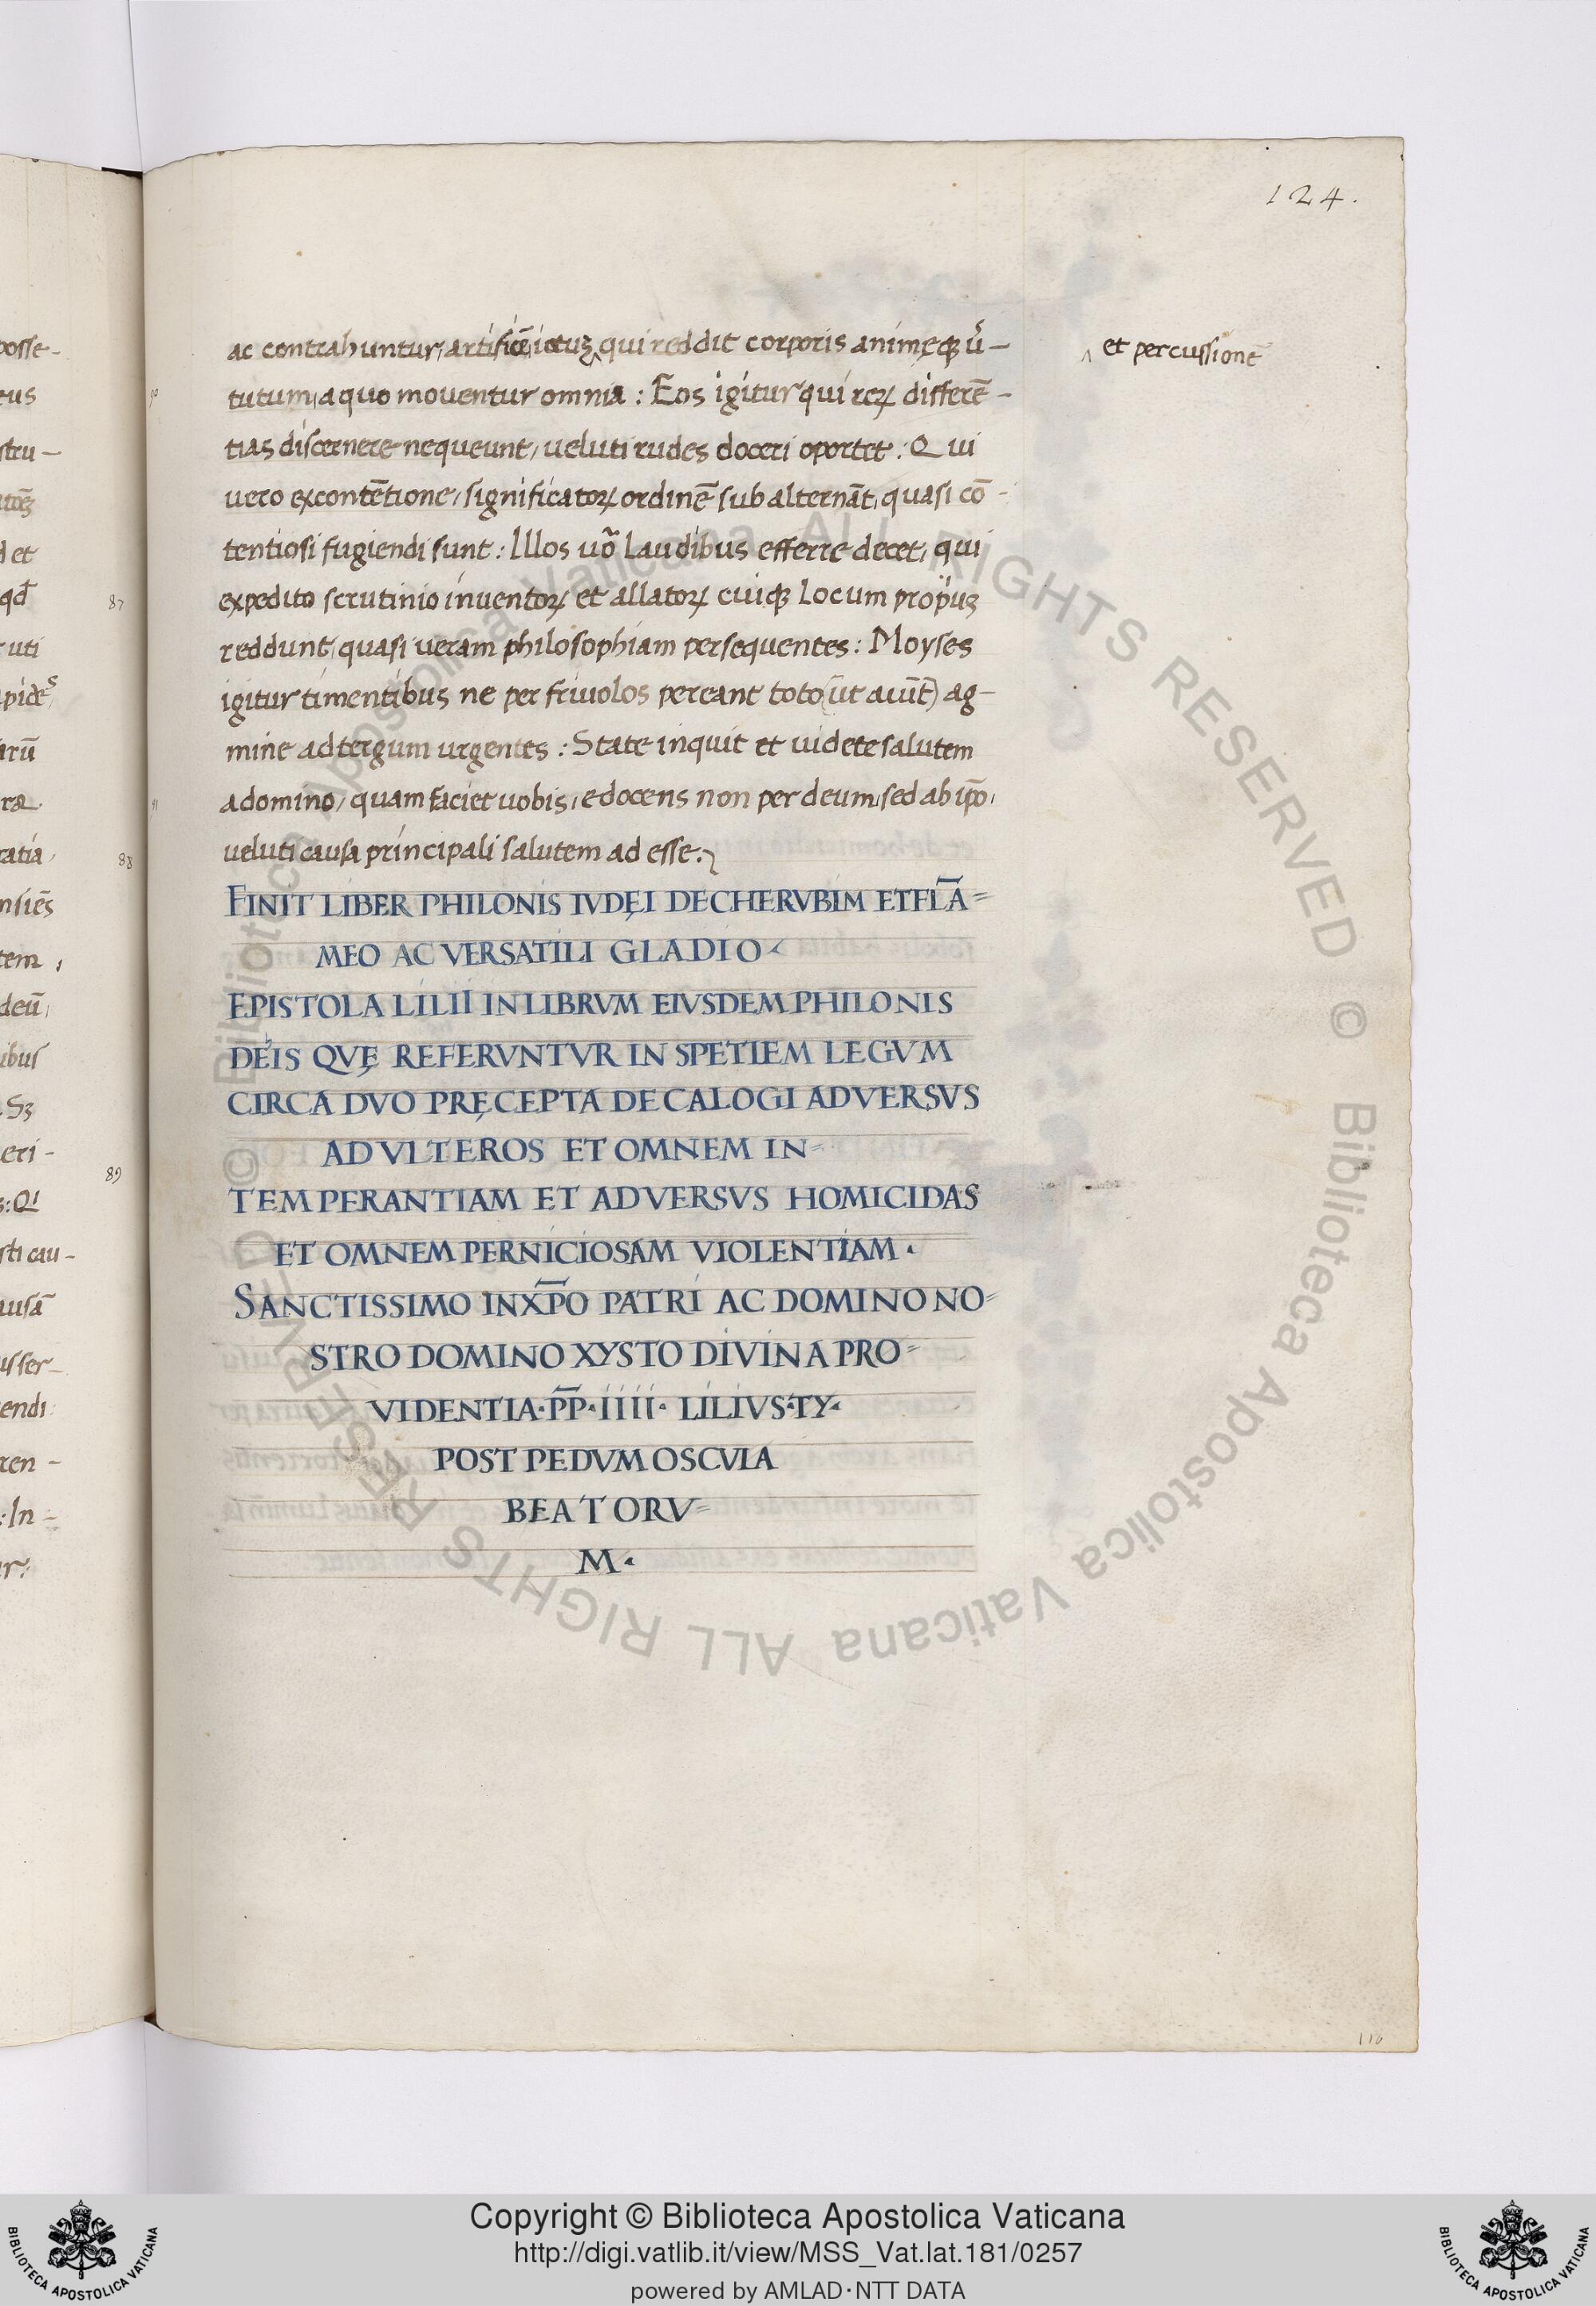 124.
ac contrahuntur, artificē ictuꝫ qui reddit corporis animęqꝫ uͥ-
et percussionē
tutum, a quo moventur omnia : Eos igitur qui reꝝ differē-
tias discernere nequeunt, veluti rudes doceri oportet : Qui
vero ex contētione, significatoꝝ ordinē subalternāt, quasi cō-
tentiosi fugiendi sunt : Illos uō laudibus efferre decet, qui
expedito scrutinio inventoꝝ et allatoꝝ cuiqꝫ locum
reddunt, quasi veram philosophiam persequentes : Moyses
igitur timentibus ne per frivolos pereant toto (ut aiūt) ag-
mine ad tergum urgentes : State inquit et videte salutem
a domino, quam faciet vobis, edocens non per deum, sed ab ip̄o,
veluti causa principali salutem ad esse :
FINIT LIBER PHILONIS IVDĘI DE CHERVBIM ET FLĀ=
MEO AC VERSATILI GLADIO
EPISTOLA LILII IN LIBRVM EIVSDEM PHILONIS
DE IS QVĘ REFERVNTVR IN SPETIEM LEGVM
CIRCA DVO PRĘCEPTA DECALOGI ADVERSVS
ADVLTEROS ET OMNEM IN=
TEMPERANTIAM ET ADVERSVS HOMICIDAS
ET OMNEM PERNICIOSAM VIOLENTIAM .
SANCTISSIMO IN XP̄O PATRI AC DOMINO NO=
STRO DOMINO XYSTO DIVINA PRO=
VIDENTIA · P̄P̄ · IIII · LILIVS · TY ·
POST PEDVM OSCVLA
BEATORV=
M .
116
posse-
87
88
89
90
91
© Biblioteca Apostolica Vaticana ALL RIGHTS RESERVED © Biblioteca Apostolica Vaticana ALL RIGHTS RESERVED
Copyright © Biblioteca Apostolica Vaticana
http://digi.vatlib.it/view/MSS_Vat.lat.181/0257
powered by AMLAD·NTT DATA
BIBLIOTECA APOSTOLICA VATICANA
BIBLIOTECA APOSTOLICA VATICANA